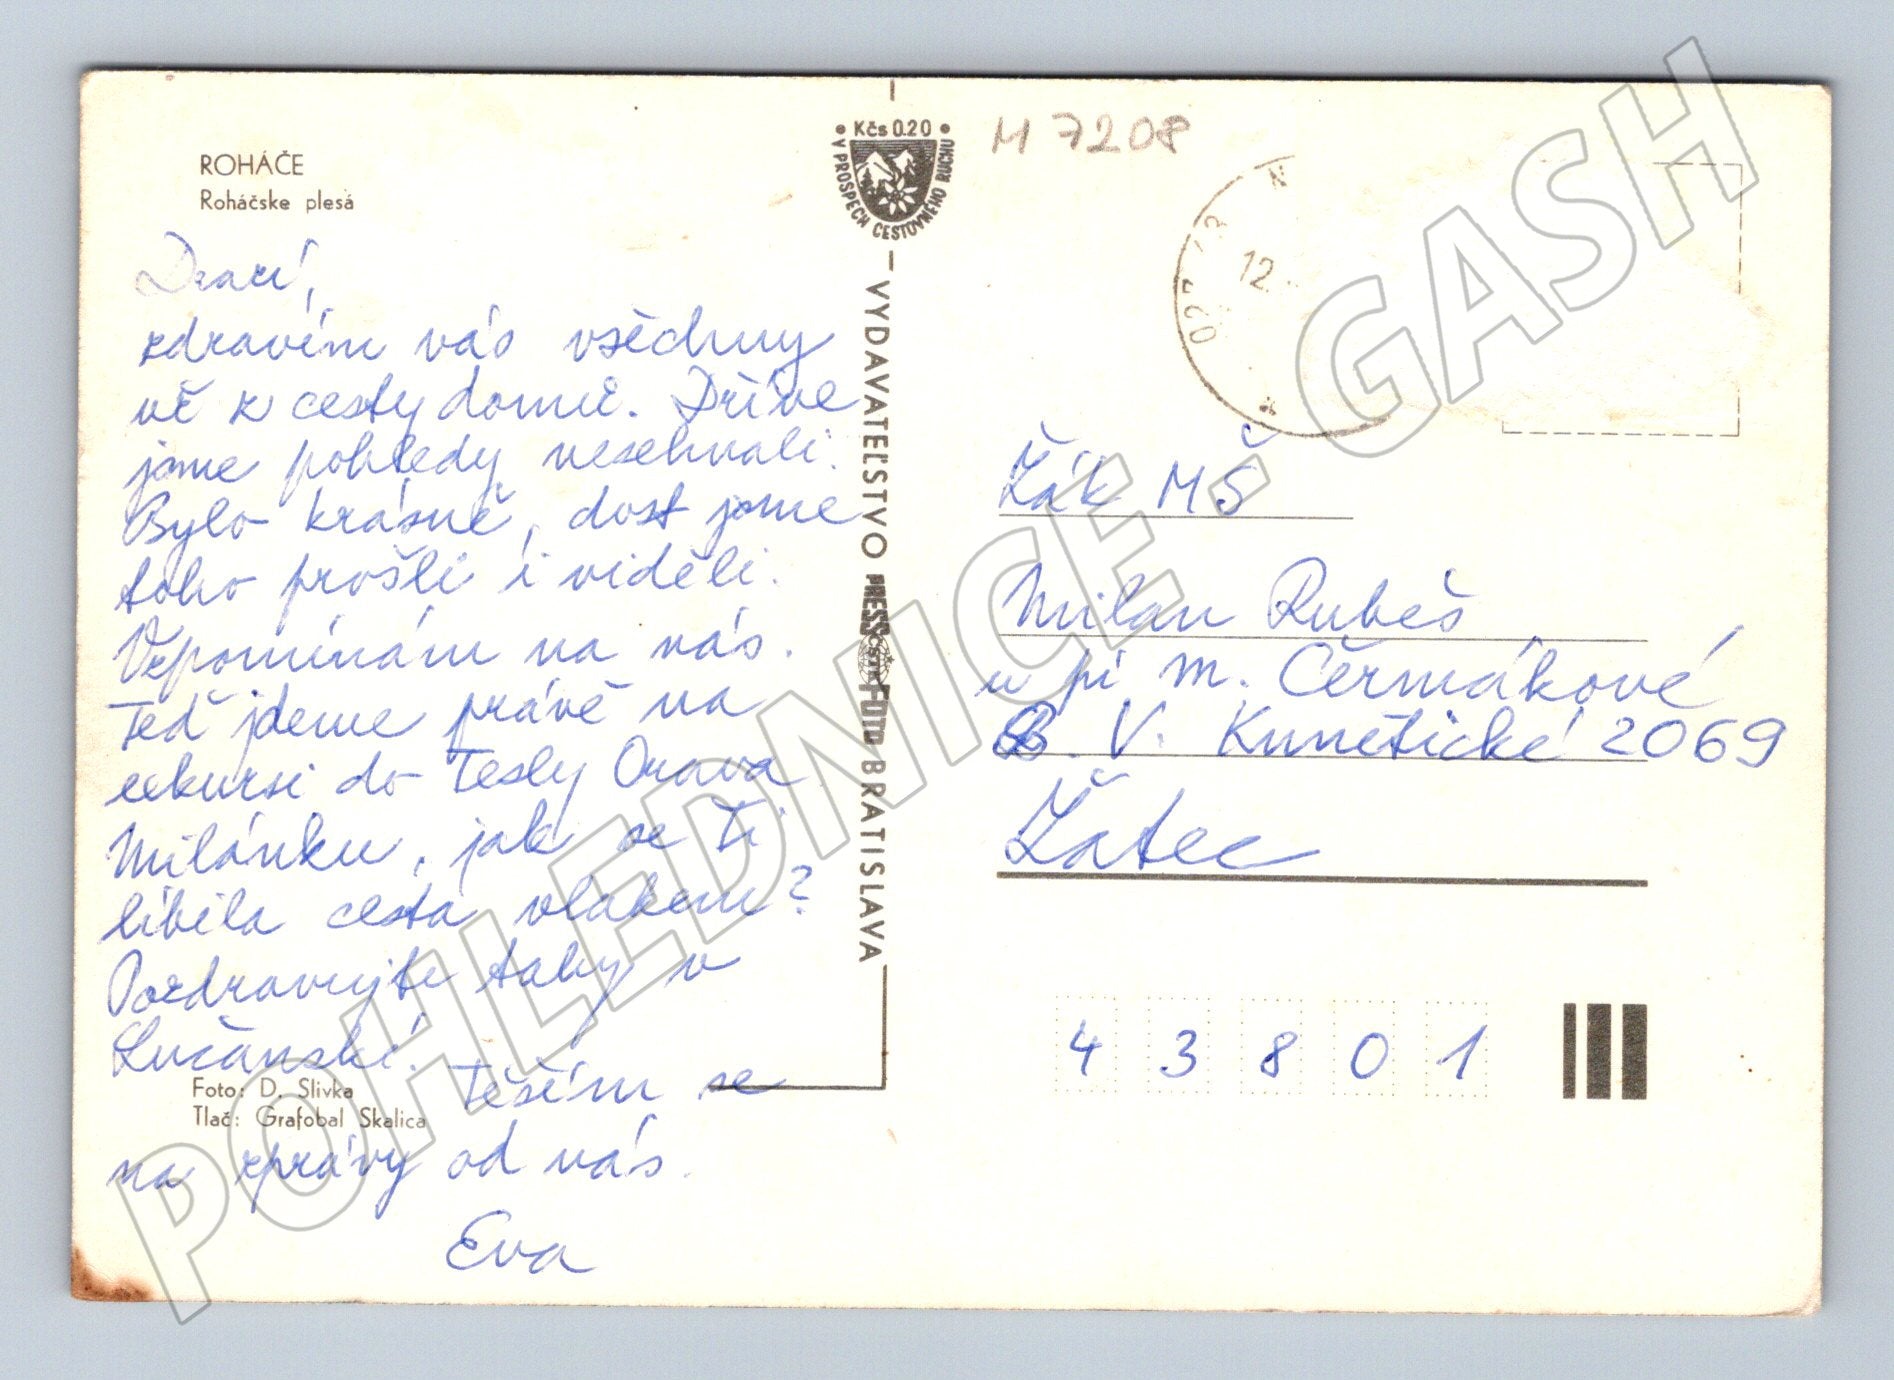 ROHÁČE
Roháčske plesá
Drazí,
zdravím vás všechny
už z cesty domů. Dříve
jsme pohledy nesehnali.
Bylo krásně, dost jsme
toho prošli i viděli.
Vzpomínám na vás.
Teď jdeme právě na
exkursi do Tesly Orava
Milánku, jak se Ti
líbila cesta vlakem?
Pozdravujte taky v
Lučanské. Těším se
Foto: D. Slivka
Tlač: Grafobal Skalica
na zprávy od vás.
Eva
Kčs 0.20
V PROSPECH CESTOVNÉHO RUCHU
VYDAVATEĽSTVO PRESSFOTO BRATISLAVA
ČSTK
M 7208
12.
Žák MŠ
Milan Rubeš
u pí M. Čermákové
B. V. Kunětické 2069
Žatec
4 3 8 0 1
POHLEDNICE - GASH